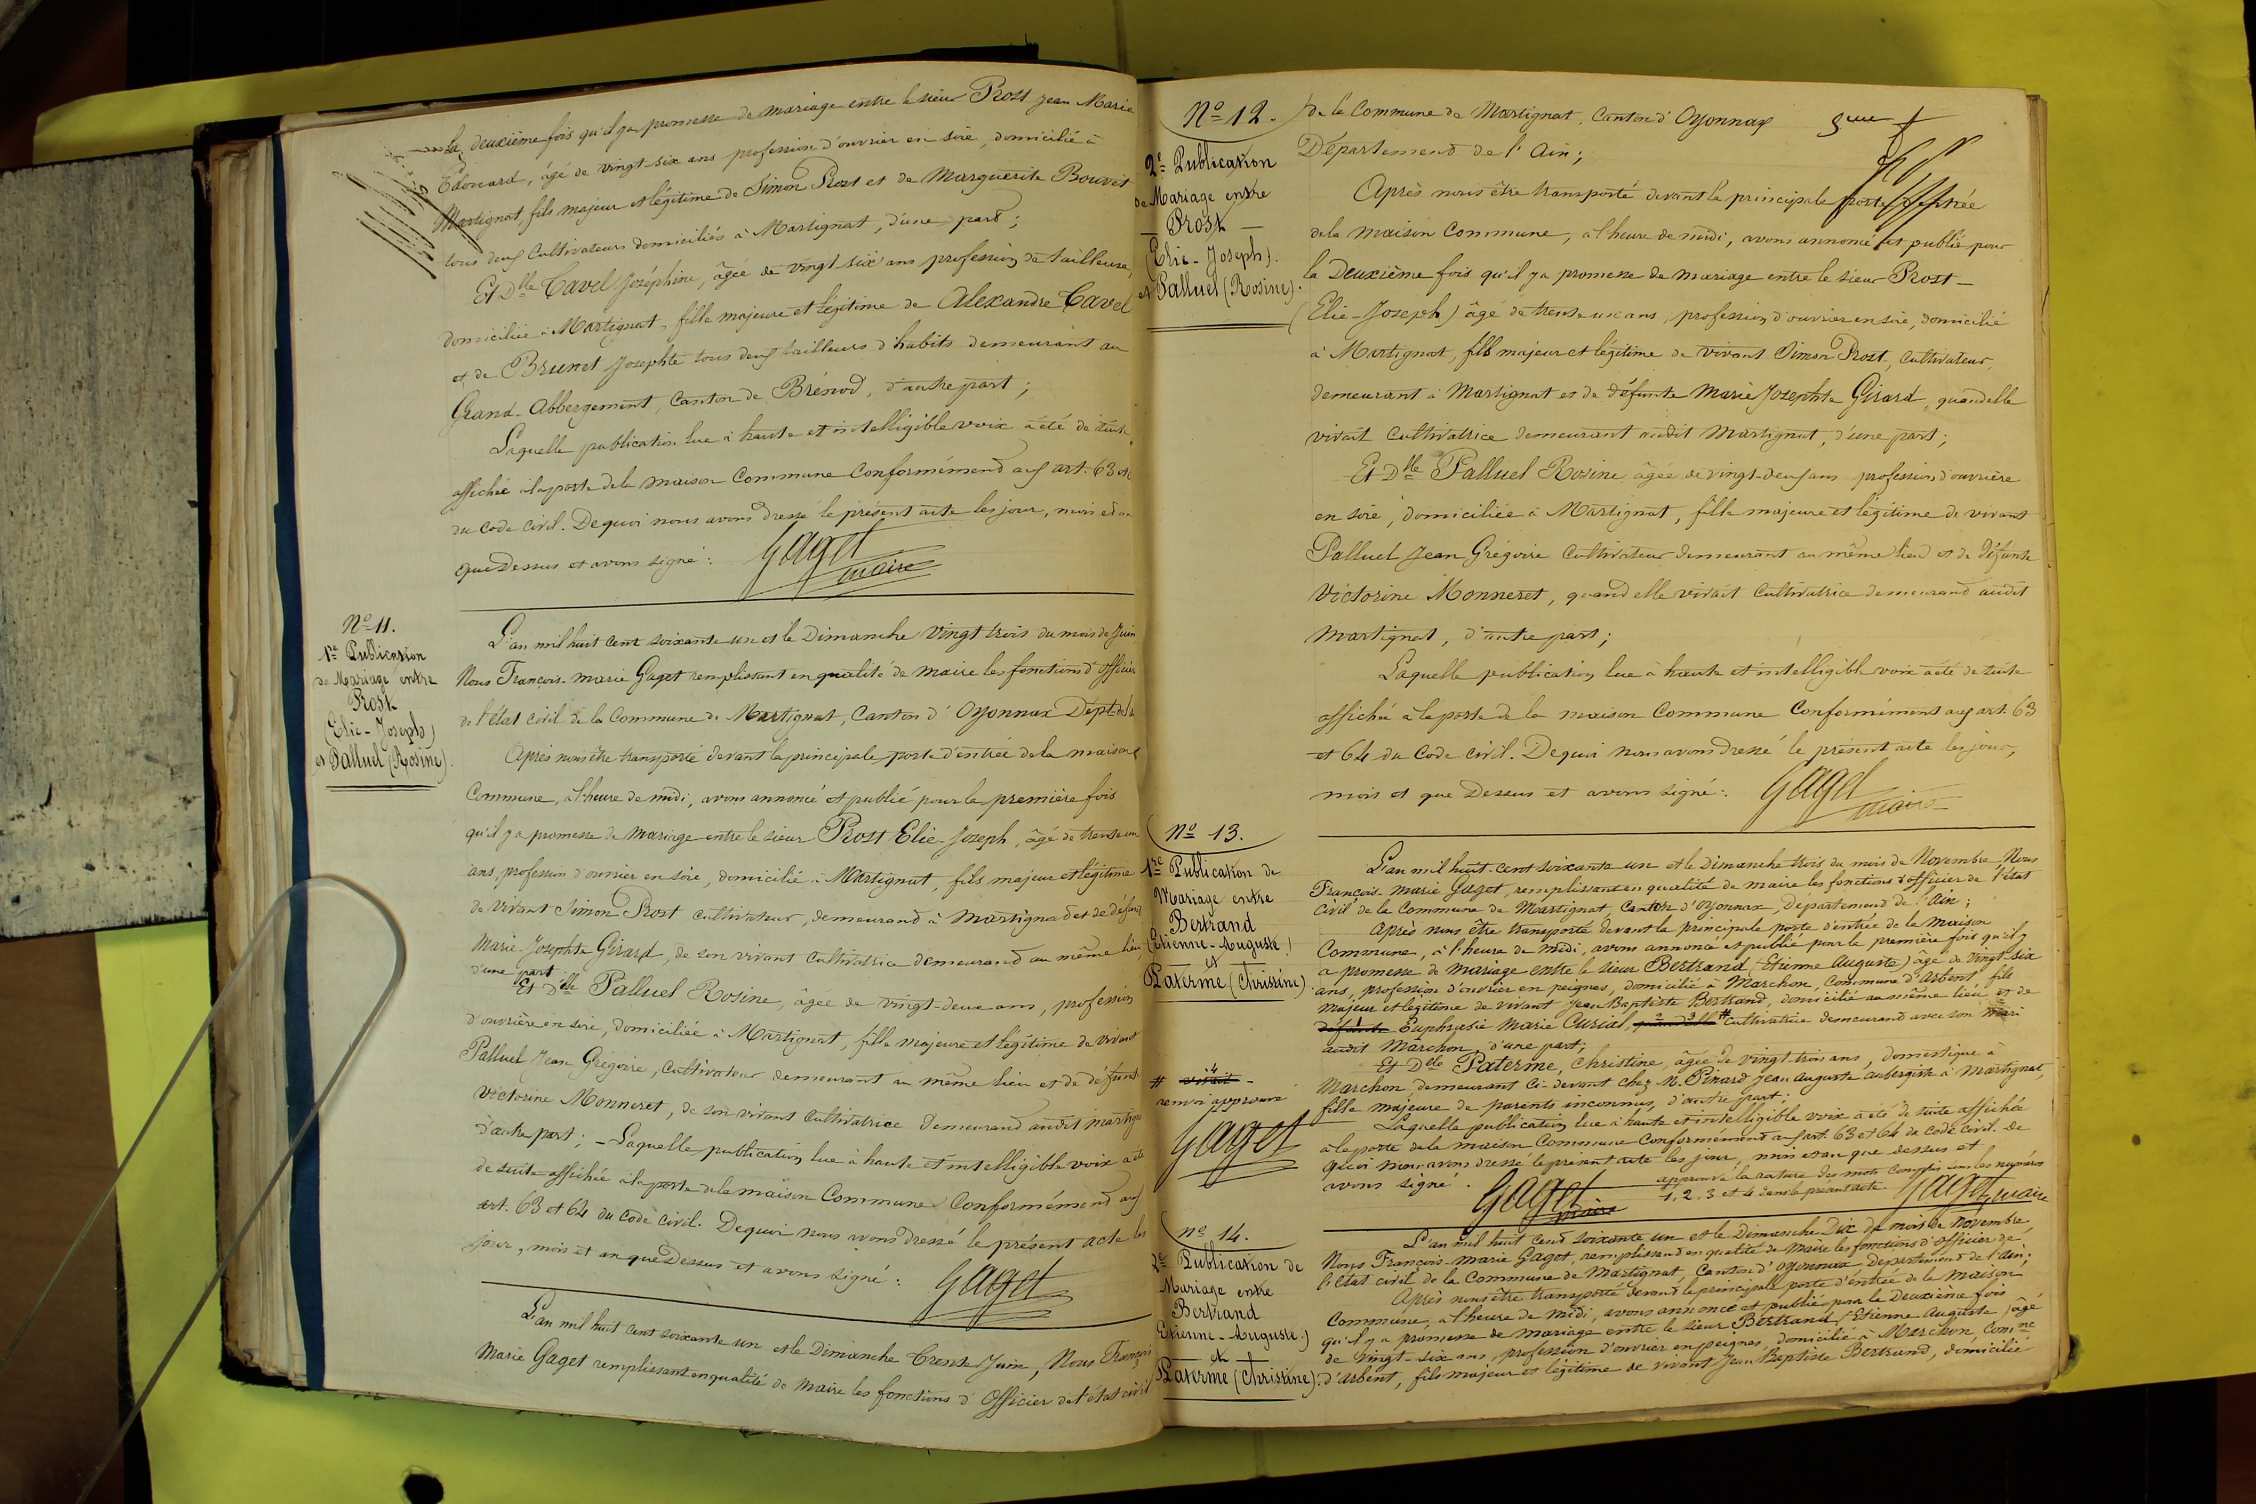 la deuxième fois qu'il y a promesse de mariage entre le sieur Prost Jean Marie
Edouard, âgé de vingt-six ans profession d'ouvrier en soie, domicilié à
Martignat, fils majeur et légitime de Simon Prost et de Marguerite Bouvet
tous deux Cultivateurs domiciliés à Martignat, d'une part;
Et Dlle Cavel Joséphine, âgée de vingt-six ans profession de tailleuse,
domiciliée à Martignat, fille majeure et légitime de Alexandre Cavel
et de Brunet Josephte tous deux tailleurs d'habits demeurant au
Grand-Abbergement, Canton de Brénod, d'autre part;
Laquelle publication lue à haute et intelligible voix a été de suite
affichée à la porte de la maison Commune Conformément aux art. 63 et
du Code Civil. De quoi nous avons dressé le présent acte les jour, mois et an
que Dessus et avons signé: Gaget
maire
No 11.
1re Publication
de Mariage entre
Prost
(Elie-Joseph)
et Palluel (Rosine).
L'an mil huit cent soixante un et le Dimanche Vingt trois du mois de Juin
Nous François-marie Gaget remplissant en qualité de maire les fonctions d'officier
de l'état civil de la Commune de Martignat, Canton d'Oyonnax Dépt de l'a
Après nous être transporté devant la principale porte d'entrée de la maison
Commune, à l'heure de midi, avons annoncé et publié pour la première fois
qu'il y a promesse de mariage entre le sieur Prost Elie-Joseph, âgé de trente un
ans, profession d'ouvrier en soie, domicilié à Martignat, fils majeur et légitime
de vivant Simon Prost cultivateur, demeurand à Martignat et de défunte
Marie-Josephte Girard, de son vivant Cultivatrice demeurand au même lieu,
d'une part
Et Dlle Palluel Rosine, âgée de vingt-deux ans, profession
d'ouvrière en soie, domiciliée à Martignat, fille majeure et légitime de vivant
Palluel Jean Grégoire, Cultivateur demeurant au même lieu et de défunte
Victorine Monneret, de son vivant Cultivatrice demeurand audit martignat
d'autre part: - Laquelle publication lue à haute et intelligible voix a été
de suite affichée à la porte de la maison Commune Conformémend aux
art. 63 et 64 du Code Civil. De quoi nous avons dressé le présent acte les
jour, mois et an que Dessus et avons signé: Gaget
L'an mil huit cent soixante un et le Dimanche Trente Juin, Nous François
Marie Gaget remplissant en qualité de Maire les fonctions d'Officier de l'état civil
No 12.
2e Publication
de Mariage entre
Prost
(Elie-Joseph).
et Palluel (Rosine).
de la Commune de Martignat, Canton d'Oyonnax
Départemend de l'Ain;
Après nous être transporté devant la principale porte d'entrée
de la maison Commune, à l'heure de midi, avons annoncé et publié pour
la Deuxième fois qu'il y a promesse de mariage entre le sieur Prost
(Elie-Joseph) âgé de trente un ans, profession d'ouvrier en soie, domicilié
à Martignat, fils majeur et légitime de vivant Simon Prost, Cultivateur,
demeurant à Martignat et de défunte Marie Josephte Girard, quand elle
vivait Cultivatrice demeurant audit Martignat, d'une part;
Et Dlle Palluel Rosine âgée de vingt-deux ans profession d'ouvrière
en soie, domiciliée à Martignat, fille majeure et légitime de vivant
Palluel Jean Grégoire Cultivateur demeurant au même lieu et de défunte
Victorine Monneret, quand elle vivait Cultivatrice demeurand audit
Martignat, d'autre part;
Laquelle publication lue à haute et intelligible voix a été de suite
affichée à la porte de la maison Commune Conformément aux art. 63
et 64 du Code Civil. De quoi nous avons dressé le présent acte les jour,
mois et que Dessus et avons signé: Gaget
maire
No 13.
1re Publication de
Mariage entre
Bertrand
(Etienne-Auguste)
et
Paterme (Christine).
L'an mil huit cent soixante un et le Dimanche trois du mois de Novembre, Nous
François-marie Gaget, remplissant en qualité de maire les fonctions d'officier de l'état
civil de la Commune de Martignat, Canton d'Oyonnax, Departemend de l'Ain;
Après nous être transporté devant la principale porte d'entrée de la maison
Commune, à l'heure de midi, avons annoncé et publié pour la première fois qu'il y
a promesse de mariage entre le sieur Bertrand (Etienne Auguste) âgé de vingt-six
ans, profession d'ouvrier en peignes, domicilié à Marchon, Commune d'Arbent, fils
majeur et légitime de vivant Jean Baptiste Bertrand, domicilié au même lieu et de
défunte Euphrasie Marie Curial, quand elle # cultivatrice demeurand avec son mari
audit Marchon, d'une part;
Et Dlle Paterme, Christine, âgée de vingt-trois ans, domestique à
Marchon, demeurant Ci-devant chez M. Pinard Jean Auguste aubergiste à Martignat,
fille majeure de parents inconnus, d'autre part;
Laquelle publication lue à haute et intelligible voix a été de suite affichée
à la porte de la maison Commune Conformémend aux art. 63 et 64 du Code Civil. De
quoi nous avons dressé le présent acte les jour, mois et an que dessus et
avons signé. Gaget
maire
approuvé la rature des mots Compris sous les numéros
1, 2, 3 et 4 dans le présent acte. Gaget, maire
# vivait
renvoi approuvé
Gaget
No 14.
2e Publication de
Mariage entre
Bertrand
Etienne-Auguste)
et
Paterme (Christine).
L'an mil huit cend soixante un et le Dimanche Dix du mois de Novembre,
Nous François-Marie Gaget, remplissand en qualité de Maire les fonctions d'officier de
l'état civil de la Commune de Martignat Canton d'Oyonnax Département de l'Ain;
Après nous être transporté devand la principale porte d'entrée de la maison
Commune, à l'heure de Midi, avons annoncé et publié pour la Deuxième fois
qu'il y a promesse de mariage entre le sieur Bertrand (Etienne Auguste) âgé
de Vingt-six ans, profession d'ouvrier en peignes, domicilié à Marchon, Comne
d'Arbent, fils majeur et légitime de vivant Jean Baptiste Bertrand, domicilié